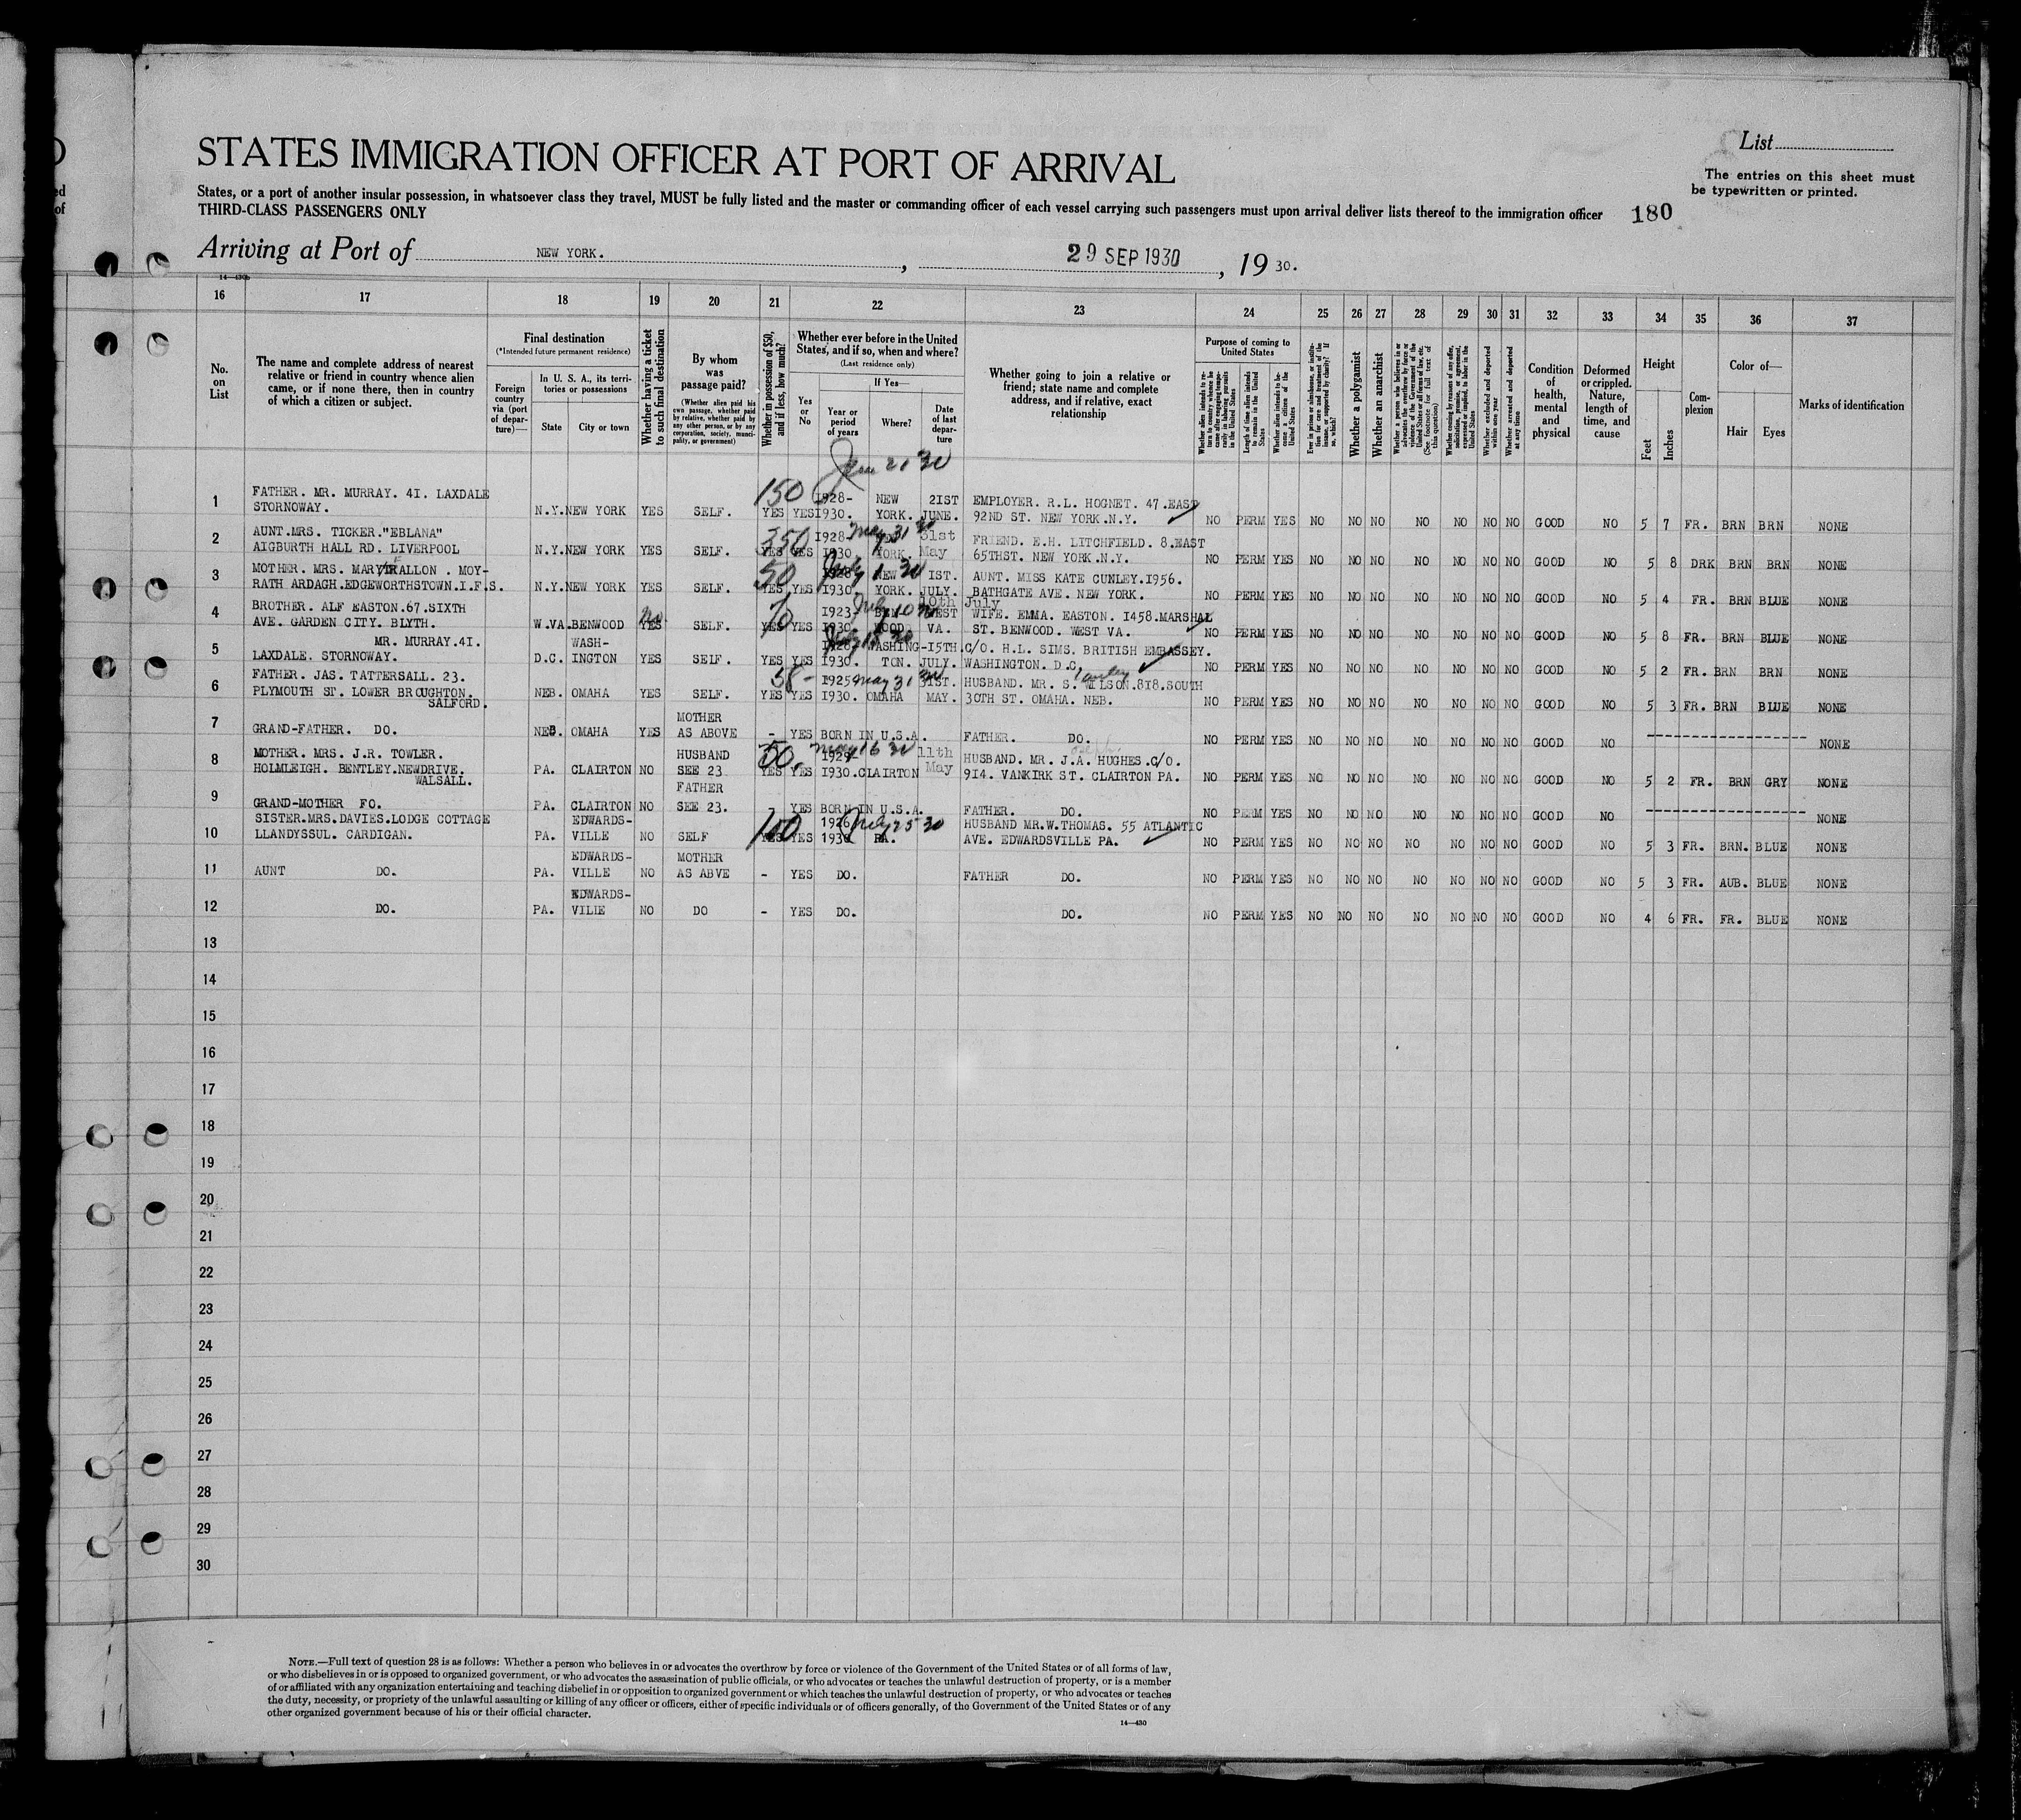 STATES IMMIGRATION OFFICER AT PORT OF ARRIVAL
List
The entries on this sheet must
be typewritten or printed.
States, or a port of another insular possession, in whatsoever class they travel, MUST be fully listed and the master or commanding officer of each vessel carrying such passengers must upon arrival deliver lists thereof to the immigration officer
THIRD-CLASS PASSENGERS ONLY
180
Arriving at Port of NEW YORK. , 29 SEP 1930 , 19 30.
16 17 18 19 20 21 22 23 24 25 26 27 28 29 30 31 32 33 34 35 36 37
No. on List
The name and complete address of nearest relative or friend in country whence alien came, or if none there, then in country of which a citizen or subject.
Final destination
(*Intended future permanent residence)
Foreign country via (port of departure)—
In U. S. A., its territories or possessions
State City or town
Whether having a ticket to such final destination
By whom was passage paid?
(Whether alien paid his own passage, whether paid by relative, whether paid by any other person, or by any corporation, society, municipality, or government)
Whether in possession of $50, and if less, how much?
Whether ever before in the United States, and if so, when and where?
(Last residence only)
Yes or No
If Yes—
Year or period of years Where? Date of last departure
Whether going to join a relative or friend; state name and complete address, and if relative, exact relationship
Purpose of coming to United States
Length of time alien intends to remain in the United States
Whether alien intends to become a citizen of the United States
Whether a polygamist
Whether an anarchist
Whether excluded and deported within one year
Whether arrested and deported at any time
Condition of health, mental and physical
Deformed or crippled. Nature, length of time, and cause
Height
Feet Inches
Complexion
Color of—
Hair Eyes
Marks of identification
1 FATHER. MR. MURRAY. 41. LAXDALE STORNOWAY. N.Y. NEW YORK YES SELF. 150 YES YES 1928-1930. NEW YORK. 21ST JUNE. EMPLOYER. R.L. HOGNET. 47.EAST 92ND ST. NEW YORK.N.Y. NO PERM YES NO NO NO NO NO NO NO GOOD NO 5 7 FR. BRN BRN NONE
2 AUNT.MRS. TICKER."EBLANA" AIGBURTH HALL RD. LIVERPOOL N.Y. NEW YORK YES SELF. 350 YES YES 1928-1930 YORK. 31st May May 31 30 FRIEND. E.H. LITCHFIELD. 8.EAST 65THST. NEW YORK.N.Y. NO PERM YES NO NO NO NO NO NO NO GOOD NO 5 8 DRK BRN BRN NONE
3 MOTHER. MRS. MARY FALLON . MOY-RATH ARDAGH.EDGEWORTHSTOWN.I.F.S. N.Y. NEW YORK YES SELF. 50 YES YES 1930. NEW YORK. 1ST. JULY. July 1 30 AUNT. MISS KATE CUNLEY.1956. BATHGATE AVE. NEW YORK. NO PERM YES NO NO NO NO NO NO NO GOOD NO 5 4 FR. BRN BLUE NONE
4 BROTHER. ALF EASTON.67.SIXTH AVE. GARDEN CITY. BLYTH. W.VA. BENWOOD No YES SELF. 70 YES YES 1923-1930. BENWOOD. WEST VA. 10th July July 10 30 WIFE. EMMA. EASTON. 1458.MARSHAL ST. BENWOOD. WEST VA. NO PERM YES NO NO NO NO NO NO NO GOOD NO 5 8 FR. BRN BLUE NONE
5 MR. MURRAY.41. LAXDALE. STORNOWAY. D.C. WASH-INGTON YES SELF. YES YES 1930. WASHING-TON. 15TH. JULY. C/O. H.L. SIMS. BRITISH EMBASSEY. WASHINGTON. D.C. NO PERM YES NO NO NO NO NO NO NO GOOD NO 5 2 FR. BRN BRN NONE
6 FATHER. JAS. TATTERSALL. 23. PLYMOUTH ST. LOWER BROUGHTON. SALFORD. NEB. OMAHA YES SELF. 58- YES YES 1925 1930. OMAHA 31ST. MAY. May 31 30 HUSBAND. MR. S. WILSON.818.SOUTH 30TH ST. OMAHA. NEB. NO PERM YES NO NO NO NO NO NO NO GOOD NO 5 3 FR. BRN BLUE NONE
7 GRAND-FATHER. DO. NEB. OMAHA YES MOTHER AS ABOVE - YES BORN IN U.S.A. FATHER. DO. NO PERM YES NO NO NO NO NO NO NO GOOD NO NONE
8 MOTHER. MRS. J.R. TOWLER. HOLMLEIGH. BENTLEY.NEWDRIVE. WALSALL. PA. CLAIRTON NO HUSBAND SEE 23 YES YES 1930. CLAIRTON 11th May May 16 30 HUSBAND. MR. J.A. HUGHES.C/O. 914. VANKIRK ST. CLAIRTON PA. NO PERM YES NO NO NO NO NO NO NO GOOD NO 5 2 FR. BRN GRY NONE
9 GRAND-MOTHER FO. PA. CLAIRTON NO FATHER SEE 23. - YES BORN IN U.S.A. FATHER. DO. NO PERM YES NO NO NO NO NO NO NO GOOD NO NONE
10 SISTER.MRS.DAVIES.LODGE COTTAGE LLANDYSSUL. CARDIGAN. PA. EDWARDS-VILLE NO SELF 100 YES YES 1926 1930 PA. July 25 30 HUSBAND MR.W.THOMAS. 55 ATLANTIC AVE. EDWARDSVILLE PA. NO PERM YES NO NO NO NO NO NO NO GOOD NO 5 3 FR. BRN. BLUE NONE
11 AUNT DO. PA. EDWARDS-VILLE NO MOTHER AS ABVE - YES DO. FATHER DO. NO PERM YES NO NO NO NO NO NO NO GOOD NO 5 3 FR. AUB. BLUE NONE
12 DO. PA. EDWARDS-VILIE NO DO - YES DO. DO. NO PERM YES NO NO NO NO NO NO NO GOOD NO 4 6 FR. FR. BLUE NONE
13
14
15
16
17
18
19
20
21
22
23
24
25
26
27
28
29
30
NOTE.—Full text of question 28 is as follows: Whether a person who believes in or advocates the overthrow by force or violence of the Government of the United States or of all forms of law,
or who disbelieves in or is opposed to organized government, or who advocates the assassination of public officials, or who advocates or teaches the unlawful destruction of property, or is a member
of or affiliated with any organization entertaining and teaching disbelief in or opposition to organized government or which teaches the unlawful destruction of property, or who advocates or teaches
the duty, necessity, or propriety of the unlawful assaulting or killing of any officer or officers, either of specific individuals or of officers generally, of the Government of the United States or of any
other organized government because of his or their official character.
14—430